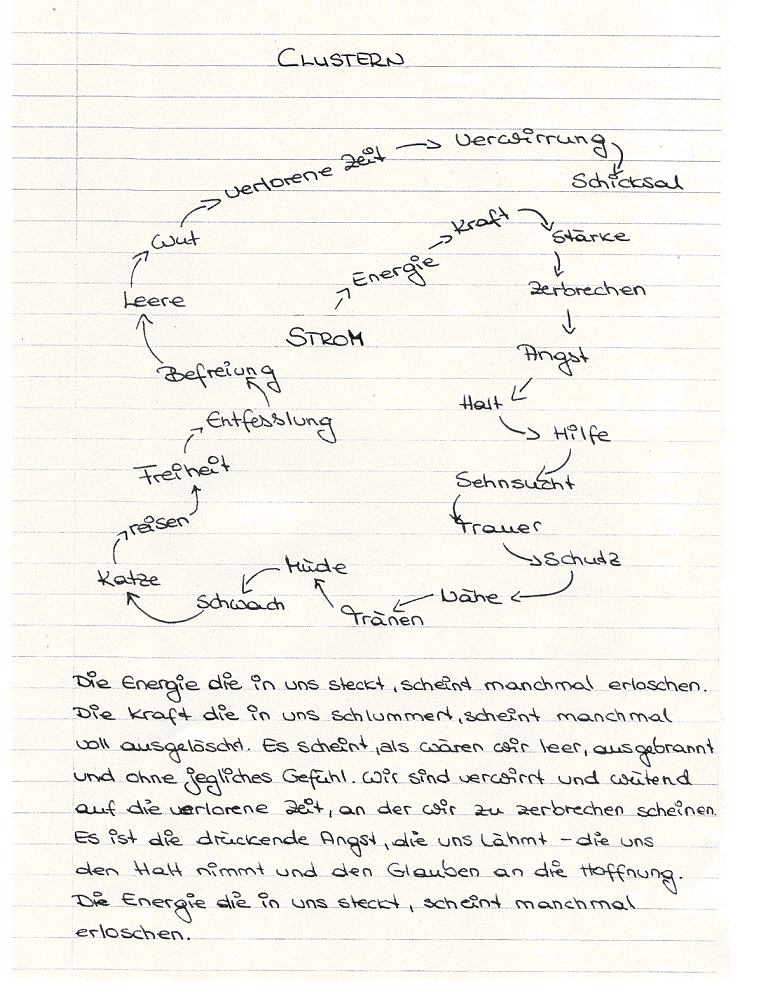 CLUSTERN
STROM
Energie
Kraft
Stärke
Zerbrechen
Angst
Halt
Hilfe
Sehnsucht
Trauer
Schutz
Nähe
Tränen
Müde
Schwach
Katze
reisen
Freiheit
Entfesslung
Befreiung
Leere
Wut
verlorene Zeit
Verwirrung
Schicksal
Die Energie die in uns steckt, scheint manchmal erloschen.
Die Kraft die in uns schlummert, scheint manchmal
voll ausgelöscht. Es scheint, als wären wir leer, ausgebrannt
und ohne jegliches Gefühl. Wir sind verwirrt und wütend
auf die verlorene Zeit, an der wir zu zerbrechen scheinen.
Es ist die drückende Angst, die uns lähmt – die uns
den Halt nimmt und den Glauben an die Hoffnung.
Die Energie die in uns steckt, scheint manchmal
erloschen.